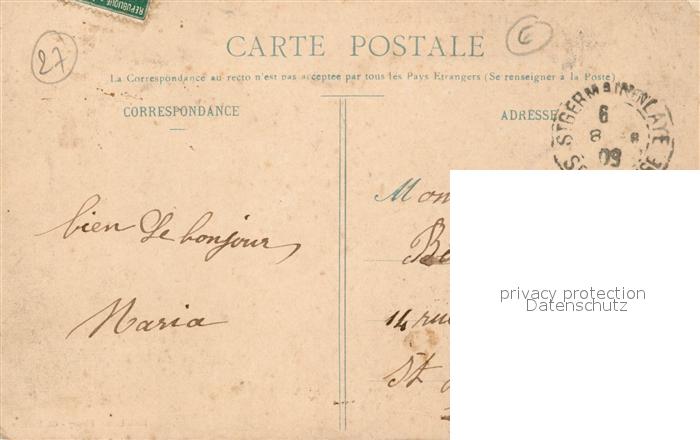 REPUBLIQUE
27
6
CARTE POSTALE
La Correspondance au recto n'est pas acceptée par tous les Pays Etrangers (Se renseigner à la Poste)
CORRESPONDANCE
ADRESSE
ST GERMAIN EN LAYE
6
8
09
bien Le bonjour
Maria
14 rue
St
privacy protection
Datenschutz